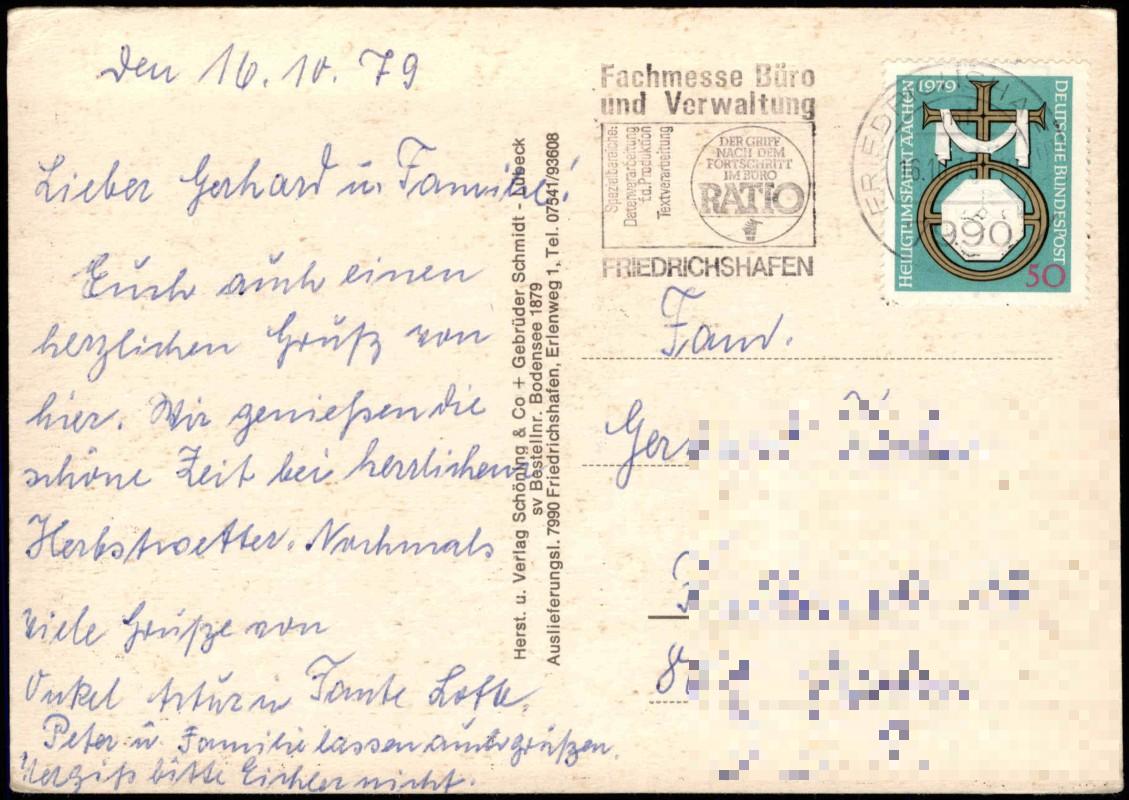 den 16.10.79
Lieber Gerhard u. Familie!
Euch auch einen
herzlichen Gruß von
hier. Wir genießen die
schöne Zeit bei herrlichem
Herbstwetter. Nochmals
viele Grüße von
Onkel Artur u Tante Lotte.
Peter u. Familie lassen auch grüßen.
Vergiß bitte Eichler nicht.
Herst. u. Verlag Schöning & Co + Gebrüder Schmidt - Lübeck
sv Bestellnr. Bodensee 1879
Auslieferungsl. 7990 Friedrichshafen, Erlenweg 1, Tel. 07541/93608
Fachmesse Büro
und Verwaltung
Spezialbereiche:
Datenverarbeitung
f.d. Produktion
Textverarbeitung
DER GRIFF
NACH DEM
FORTSCHRITT
IM BÜRO
RATIO
FRIEDRICHSHAFEN
HEILIGTUMSFAHRT AACHEN 1979
DEUTSCHE BUNDESPOST
50
990
Fam.